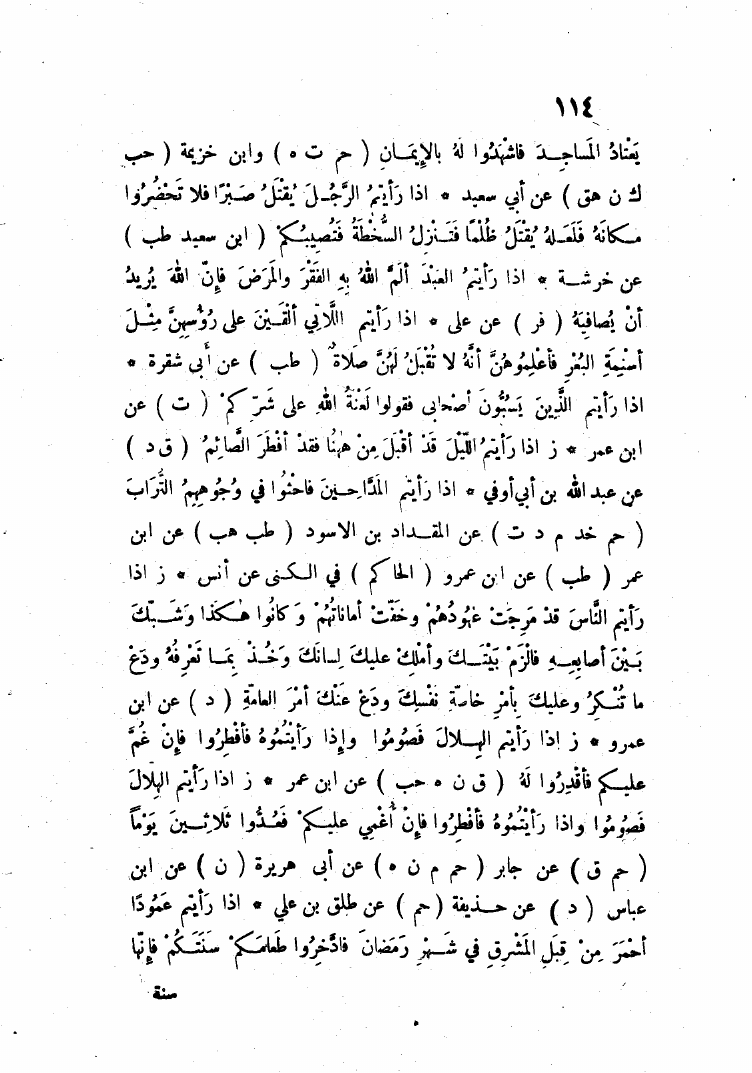 ١١٤
يَعْتَادُ المَسَاجِدَ فاشْهَدُوا لَهُ بالإيمَانِ ( حم ت ه ) وابن خزيمة ( حب
ك ن هق ) عن أبي سعيد * اذا رَأَيْتُمُ الرَّجُلَ يُقْتَلُ صَبْرًا فلا تَحْضُرُوا
مكانَهُ فَلَعَلَّهُ يُقْتَلُ ظُلْمًا فَتَنْزِلُ السُّخْطَةُ فَتُصِيبُكُمْ ( ابن سعيد طب )
عن خرشة * اذا رَأَيْتُمُ العَبْدَ ألَمَّ اللهُ بِهِ الفَقْرَ والمَرَضَ فإنّ اللهَ يُرِيدُ
أنْ يُصافِيَهُ ( فر ) عن على * اذا رَأَيْتُم اللَّاتِي ألْقَيْنَ على رُؤُسِهِنَّ مِثْلَ
أسْنِمَةِ البُعْرِ فأعْلِمُوهُنَّ أنَّهُ لا تُقْبَلُ لَهُنَّ صَلاةٌ ( طب ) عن أبى شقرة *
اذا رَأَيْتُم الَّذِينَ يَسُبُّونَ أصْحابى فقولوا لَعْنَةُ اللهِ على شَرِّكُمْ ( ت ) عن
ابن عمر * ز اذا رَأَيْتُمُ اللّيْلَ قَدْ أقْبَلَ مِنْ هٰهُنا فقدْ أفْطَرَ الصَّائِمُ ( ق د )
عن عبد الله بن أبي أوفي * اذا رَأَيْتُم المَدَّاحِينَ فاحْثُوا في وُجُوهِهِمُ التُّرَابَ
( حم خد م د ت ) عن المقداد بن الاسود ( طب هب ) عن ابن
عمر ( طب ) عن ابن عمرو ( الحاكم ) في الكنى عن أنس * ز اذا
رَأَيْتُم النَّاسَ قَدْ مَرِجَتْ عُهُودُهُمْ وخَفَّتْ أماناتُهُمْ وَكانُوا هٰكَذا وَشَبَّكَ
بَيْنَ أصابِعِهِ فالْزَمْ بَيْتَكَ وأمْلِكْ عليكَ لِسانَكَ وَخُذْ بِمَا تَعْرِفُهُ ودَعْ
ما تُنْكِرُ وعليكَ بِأمْرِ خاصّةِ نَفْسِكَ ودَعْ عَنْكَ أمْرَ العامّةِ ( د ) عن ابن
عمرو * ز اذا رَأَيْتُم الهِلالَ فَصُومُوا وإِذا رَأَيْتُمُوهُ فأفْطِرُوا فإنْ غُمَّ
عليكم فأقْدِرُوا لَهُ ( ق ن ه حب ) عن ابن عمر * ز اذا رَأَيْتُم الهِلالَ
فَصُومُوا واذا رَأَيْتُمُوهُ فأفْطِرُوا فإنْ أُغْمِي عليكُمْ فَعُدُّوا ثَلاثِينَ يَوْماً
( حم ق ) عن جابر ( حم م ن ه ) عن أبى هريرة ( ن ) عن ابن
عباس ( د ) عن حذيفة ( حم ) عن طلق بن علي * اذا رَأَيْتُم عَمُودًا
أحْمَرَ مِنْ قِبَلِ المَشْرِقِ في شَهْرِ رَمَضانَ فادَّخِرُوا طَعامَكُمْ سَنَتَكُمْ فإنّها
سنة